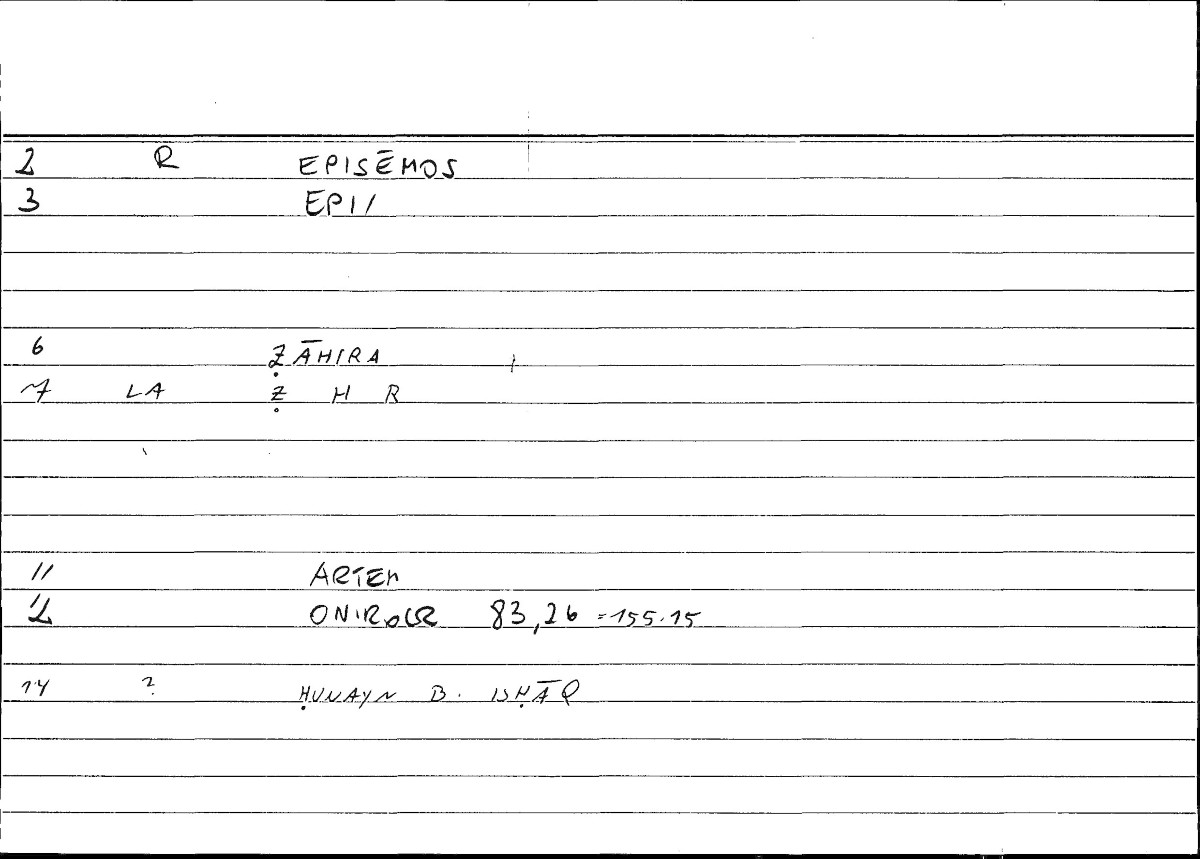 2 R EPISĒMOS
3 EPI/
6 ẒĀHIRA
7 LA Ẓ H R
11 ARTEM
12 ONIROCR 83,26 =155.15
14 ? ḤUNAYN B. ISḤĀQ